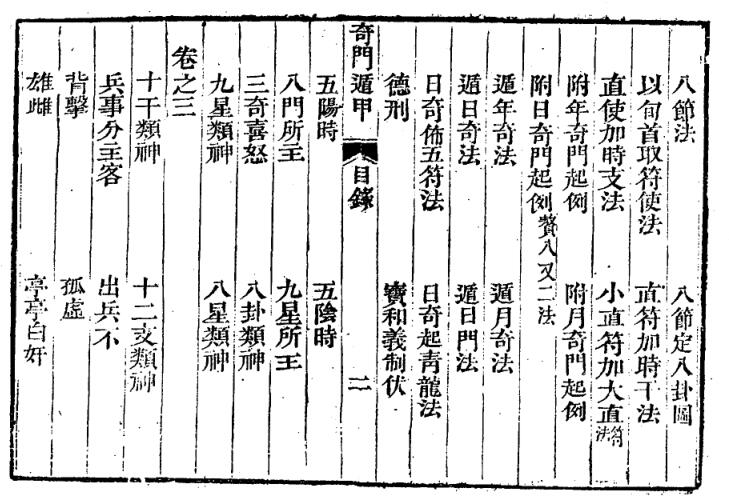 八節法　八節定八卦圖
以旬首取符使法　直符加時干法
直使加時支法　小直符加大直符法
附年奇門起例　附月奇門起例
附日奇門起例贅八又二法
遁年奇法　遁月奇法
遁日奇法　遁日門法
日奇佈五符法　日奇起青龍法
德刑　寶和義制伏
奇門遁甲　目錄　二
五陽時　五陰時
八門所主　九星所主
三奇喜怒　八卦類神
九星類神　八星類神
卷之三
十干類神　十二支類神
兵事分主客　出兵不
背擊　孤虛
雄雌　亭亭白奸